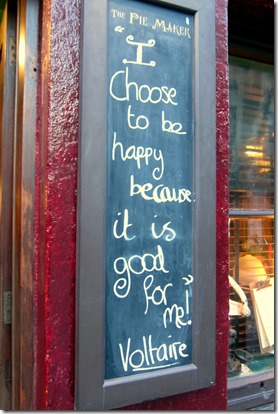 THE PIE MAKER
"I
Choose
to be
happy
because
it is
good
for
me!"
Voltaire